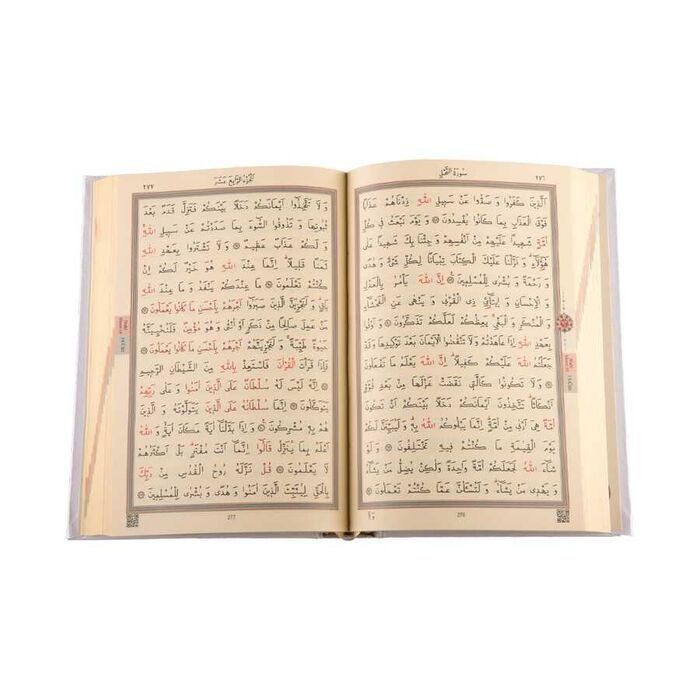 سُورَةُ النَّحْلِ ٢٧٦
اَلَّذِينَ كَفَرُوا وَ صَدُّوا عَنْ سَبِيلِ اللّٰهِ زِدْنَاهُمْ عَذَابًا
فَوْقَ الْعَذَابِ بِمَا كَانُوا يُفْسِدُونَ ۝ وَ يَوْمَ نَبْعَثُ فِي كُلِّ
اُمَّةٍ شَهِيدًا عَلَيْهِمْ مِنْ اَنْفُسِهِمْ وَ جِئْنَا بِكَ شَهِيدًا عَلٰى
هٰٓؤُلَٓاءِ وَ نَزَّلْنَا عَلَيْكَ الْكِتَابَ تِبْيَانًا لِكُلِّ شَيْءٍ وَ هُدًى
وَ رَحْمَةً وَ بُشْرٰى لِلْمُسْلِمِينَ ۝ اِنَّ اللّٰهَ يَأْمُرُ بِالْعَدْلِ
وَ الْاِحْسَانِ وَ اِيتَٓائِ ذِي الْقُرْبٰى وَ يَنْهٰى عَنِ
الْفَحْشَٓاءِ وَ الْمُنْكَرِ وَ الْبَغْيِ يَعِظُكُمْ لَعَلَّكُمْ تَذَكَّرُونَ ۝ وَ اَوْفُوا
بِعَهْدِ اللّٰهِ اِذَا عَاهَدْتُمْ وَ لَا تَنْقُضُوا الْاَيْمَانَ بَعْدَ تَوْكِيدِهَا وَ قَدْ
جَعَلْتُمُ اللّٰهَ عَلَيْكُمْ كَفِيلًا اِنَّ اللّٰهَ يَعْلَمُ مَا تَفْعَلُونَ
۝ وَ لَا تَكُونُوا كَالَّتِي نَقَضَتْ غَزْلَهَا مِنْ بَعْدِ قُوَّةٍ
اَنْكَاثًا تَتَّخِذُونَ اَيْمَانَكُمْ دَخَلًا بَيْنَكُمْ اَنْ تَكُونَ
اُمَّةٌ هِيَ اَرْبٰى مِنْ اُمَّةٍ اِنَّمَا يَبْلُوكُمُ اللّٰهُ بِهِ وَ لَيُبَيِّنَنَّ لَكُمْ
يَوْمَ الْقِيٰمَةِ مَا كُنْتُمْ فِيهِ تَخْتَلِفُونَ ۝ وَ لَوْ
شَٓاءَ اللّٰهُ لَجَعَلَكُمْ اُمَّةً وَاحِدَةً وَ لٰكِنْ يُضِلُّ مَنْ يَشَٓاءُ
وَ يَهْدِي مَنْ يَشَٓاءُ وَ لَتُسْـَٔلُنَّ عَمَّا كُنْتُمْ تَعْمَلُونَ ۝
276
اَلْجُزْءُ الرَّابِعَ عَشَرَ ٢٧٧
وَ لَا تَتَّخِذُٓوا اَيْمَانَكُمْ دَخَلًا بَيْنَكُمْ فَتَزِلَّ قَدَمٌ بَعْدَ
ثُبُوتِهَا وَ تَذُوقُوا السُّٓوءَ بِمَا صَدَدْتُمْ عَنْ سَبِيلِ اللّٰهِ
وَ لَكُمْ عَذَابٌ عَظِيمٌ ۝ وَ لَا تَشْتَرُوا بِعَهْدِ اللّٰهِ
ثَمَنًا قَلِيلًا اِنَّمَا عِنْدَ اللّٰهِ هُوَ خَيْرٌ لَكُمْ اِنْ
كُنْتُمْ تَعْلَمُونَ ۝ مَا عِنْدَكُمْ يَنْفَدُ وَ مَا عِنْدَ اللّٰهِ
بَاقٍ وَ لَنَجْزِيَنَّ الَّذِينَ صَبَرُٓوا اَجْرَهُمْ بِاَحْسَنِ مَا كَانُوا يَعْمَلُونَ ۝
مَنْ عَمِلَ صَالِحًا مِنْ ذَكَرٍ اَوْ اُنْثٰى وَ هُوَ مُؤْمِنٌ فَلَنُحْيِيَنَّهُ
حَيٰوةً طَيِّبَةً وَ لَنَجْزِيَنَّهُمْ اَجْرَهُمْ بِاَحْسَنِ مَا كَانُوا يَعْمَلُونَ ۝
فَاِذَا قَرَأْتَ الْقُرْاٰنَ فَاسْتَعِذْ بِاللّٰهِ مِنَ الشَّيْطَانِ الرَّجِيمِ
۝ اِنَّهُ لَيْسَ لَهُ سُلْطَانٌ عَلَى الَّذِينَ اٰمَنُوا وَ عَلٰى رَبِّهِمْ
يَتَوَكَّلُونَ ۝ اِنَّمَا سُلْطَانُهُ عَلَى الَّذِينَ يَتَوَلَّوْنَهُ وَ الَّذِينَ
هُمْ بِهِ مُشْرِكُونَ ۝ وَ اِذَا بَدَّلْنَٓا اٰيَةً مَكَانَ اٰيَةٍ وَ اللّٰهُ
اَعْلَمُ بِمَا يُنَزِّلُ قَالُٓوا اِنَّمَٓا اَنْتَ مُفْتَرٍ بَلْ اَكْثَرُهُمْ
لَا يَعْلَمُونَ ۝ قُلْ نَزَّلَهُ رُوحُ الْقُدُسِ مِنْ رَبِّكَ
بِالْحَقِّ لِيُثَبِّتَ الَّذِينَ اٰمَنُوا وَ هُدًى وَ بُشْرٰى لِلْمُسْلِمِينَ ۝
277